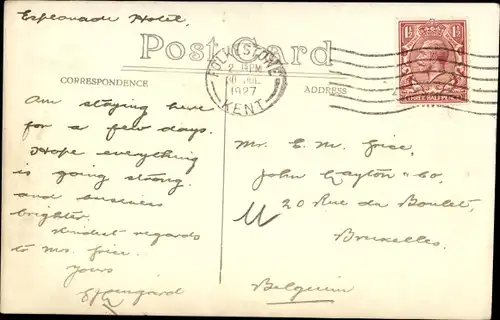 Esplanade Hotel,
Post Card
CORRESPONDENCE
ADDRESS
FOLKESTONE
2 PM
30 JUL
1927
KENT
1½ 1½
THREE HALFPENCE
Am staying here
for a few days.
Hope everything
is going strong.
and business
brighter.
Kindest regards
to Mrs. Grice.
Yours
Mr. E. M. Grice,
John Layton & Co,
20 Rue du Boulet,
Bruxelles.
Belgium